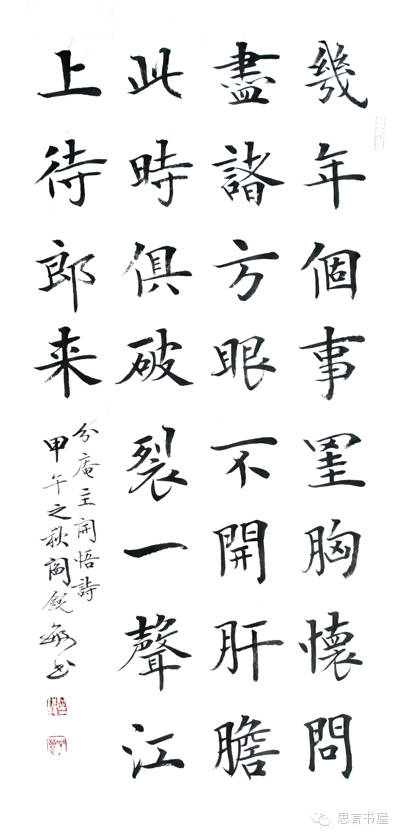 幾年個事罣胸懷問
盡諸方眼不開肝膽
此時俱破裂一聲江
上待郎来
分庵主開悟詩
甲午之秋閻銳敏书
思言书屋